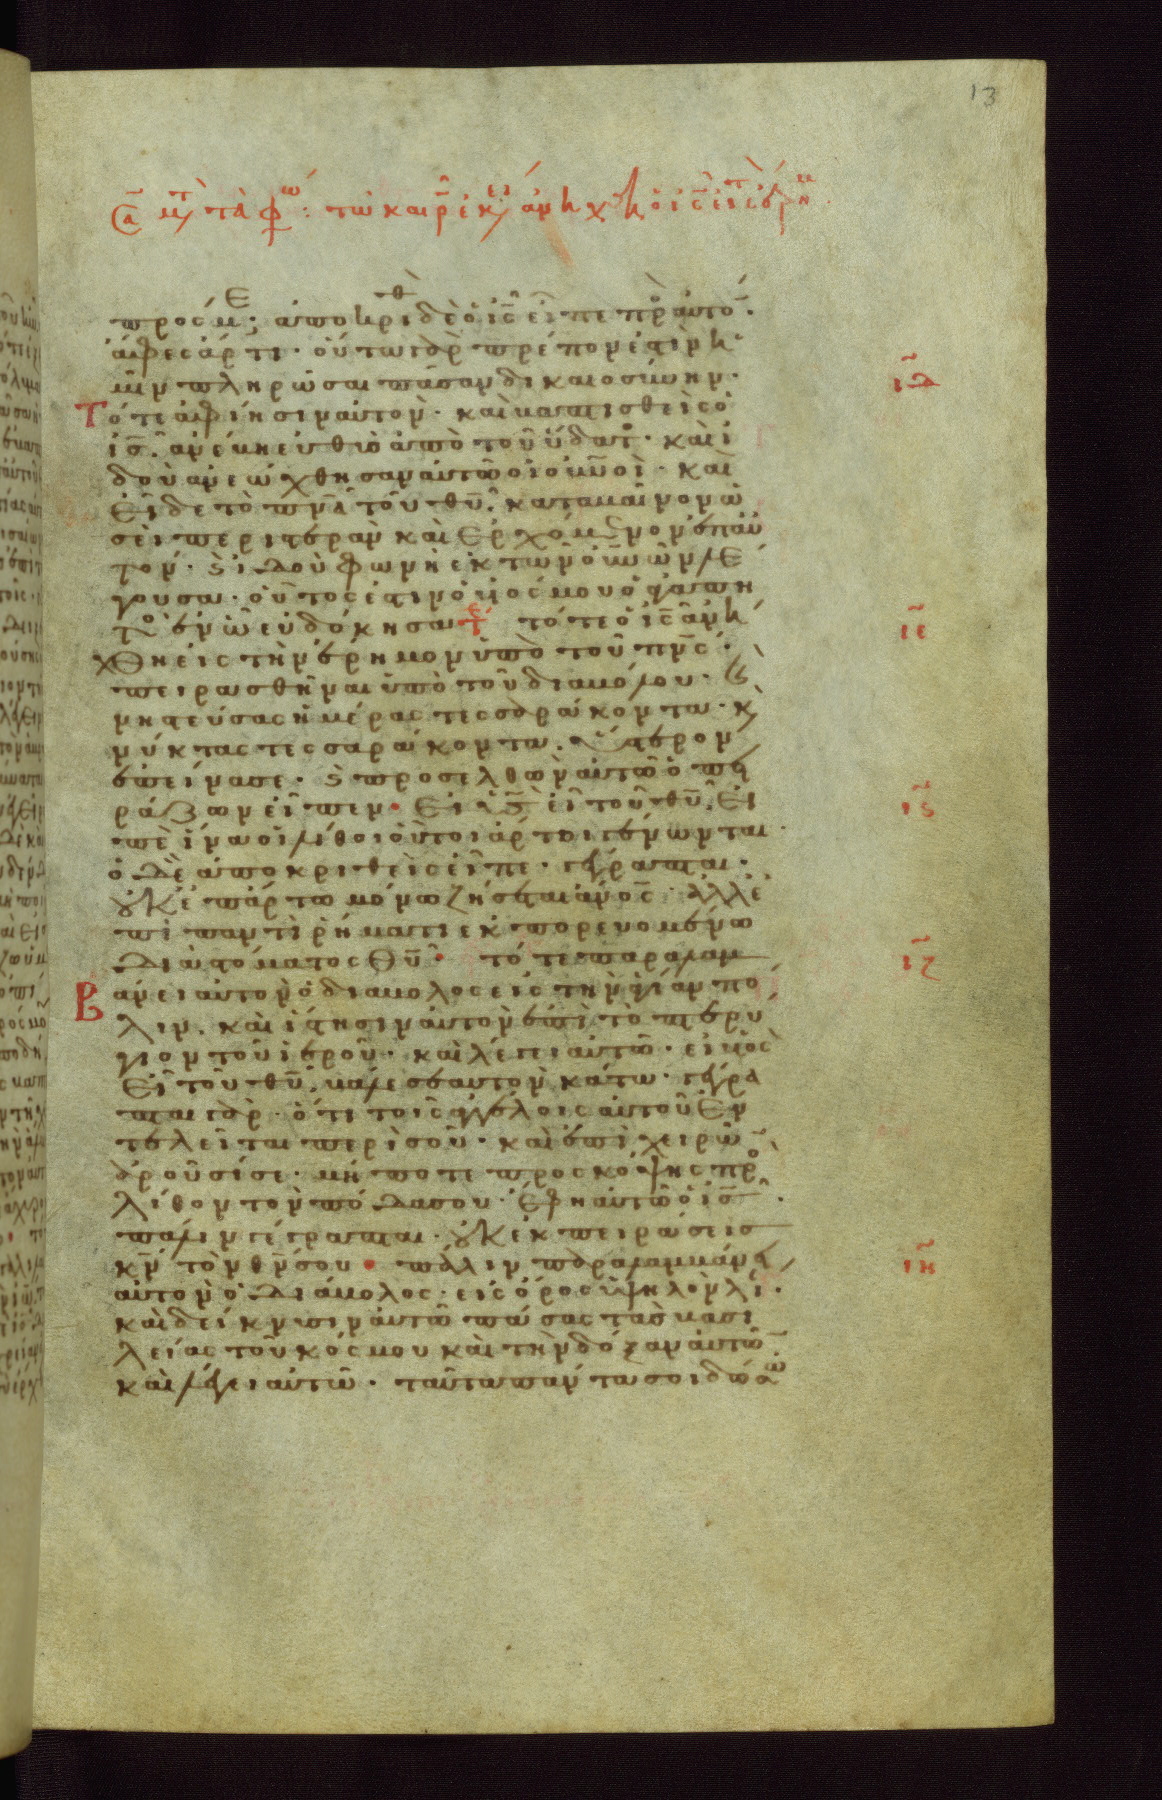 13
Σα μετ τὰ φω: τῶ καιρ ἐκ ἀνηχθη ὁ ις εις τ ερημ
προς με; ἀποκριθ δὲ ὁ ις εἶπε πρ αυτο.
ἄφες ἄρτι. οὕτω γαρ πρέπον ἐστὶν ἡ
μῖν πληρῶσαι πᾶσαν δικαιοσύνην.
ιδ
Τότε ἀφίησιν αὐτόν. καὶ βαπτισθεὶς ὁ
ις ανέβη εὐθὺσ ἀπὸ τοῦ ὕδατ. καὶ ἰ
δοὺ ἀνεώχθησαν αὐτῶ οἱ ουνοὶ. καὶ
εἶδε τὸ πνα τοῦ θυ καταβαῖνον ὡ
σεὶ περιστερὰν καὶ ἐρχόμενον ἐπ αὐ
τόν. καὶ ἰδοὺ φωνὴ ἐκ τῶν οὐνῶν λέ
γουσα. οὗτος ἐστιν ὁ υιός μου ὁ ἀγαπη
τος ἐν ὧ εὐδόκησα τε τότε ὁ ις ἀνή
ιε
χθη εἰς τὴν ἔρημον ὑπὸ τοῦ πνς.
πειρασθῆναι ὑπὸ τοῦ διαβόλου. καὶ
νηστεύσας ἡμέρας τεσσαράκοντα. καὶ
νύκτας τεσσαράκοντα. ὕστερον
ἐπείνασε. καὶ προσελθὼν αὐτῶ ὁ πει
ράζων εἶπεν. Ει υς εἶ τοῦ θυ. εἰ
ις
πὲ ἵνα οἱ λίθοι οὗτοι ἄρτοι γένωνται.
ὁ δὲ ἀποκριθεὶς εἶπε. γέγραπται.
οὐκ ἐπ ἄρτω μόνω ζήσεται ανος. ἀλλ ἐ
πὶ παντὶ ρήματι ἐκπορευομένω
διὰ στόματος θυ. τότε παραλαμ
ιζ
βάνει αὐτὸν ὁ διάβολος εἰς τὴν ἁγίαν πό
λιν. καὶ ἵστησιν αὐτὸν ἐπὶ τὸ πτερύ
γιον τοῦ ἱεροῦ. καὶ λέγει αὐτῶ. εἰ υιὸς
εἶ τοῦ θυ. βάλε σεαυτὸν κάτω. γέγρα
πται γαρ. ὅτι τοῖς ἀγγέλοις αὐτοῦ ἐν
τελεῖται περὶ σοῦ. καὶ ἐπὶ χειρῶν
ἀροῦσί σε. μή ποτε προσκόψης πρ
λίθον τὸν πόδα σου. ἔφη αὐτῶ ὁ ις.
πάλιν γέγραπται. οὐκ ἐκπειράσεισ
κν τὸν θν σου. πάλιν παραλαμβάνει
ιη
αὐτὸν ὁ διάβολος. εἰς ὄρος ὑψηλὸν λί.
καὶ δείκνυσιν αὐτῶ πάσας τὰσ βασι
λείας τοῦ κόσμου καὶ τὴν δόξαν αὐτῶν
καὶ λέγει αὐτῶ. ταῦτα πάντα σοι δώσω